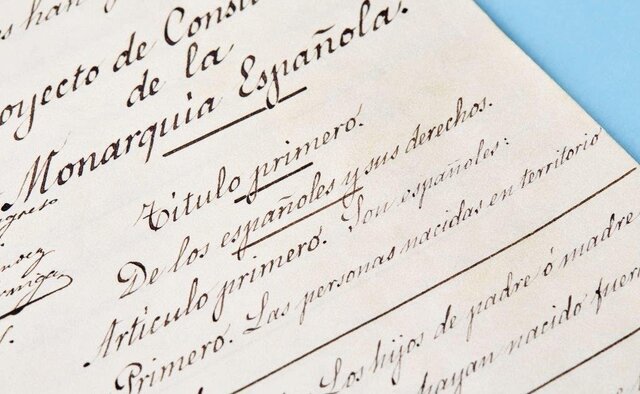 s han
oyecto de Consti
de la
Monarquía Española.
Título primero.
De los españoles y sus derechos.
Artículo primero. Son españoles:
Primero. Las personas nacidas en territorio
Los hijos de padre ó madre
hayan nacido fuera